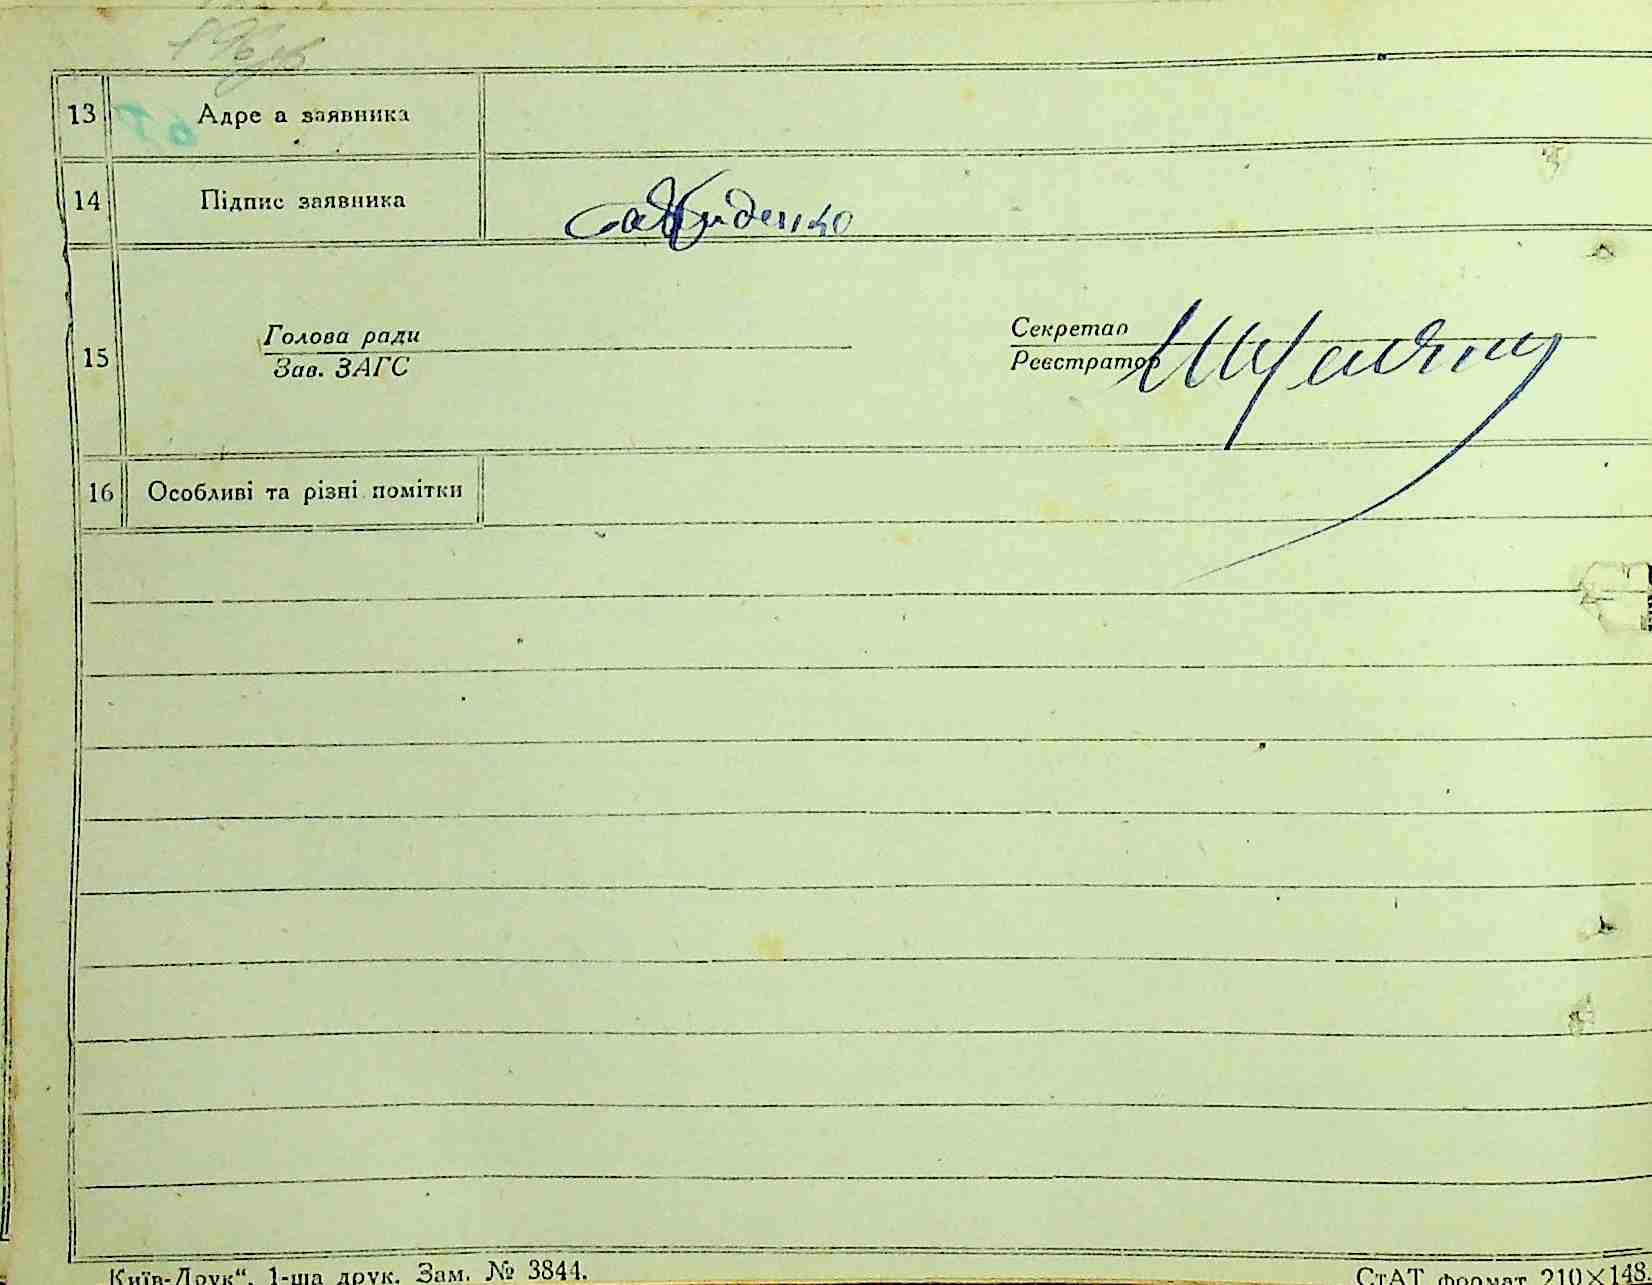 13 Адре а заявника
14 Підпис заявника
15 Голова ради
Зав. ЗАГС
Секретар
Реєстратор
16 Особливі та різні помітки
Київ-Друк“. 1-ша друк. Зам. № 3844.
СтАТ формат 210×148